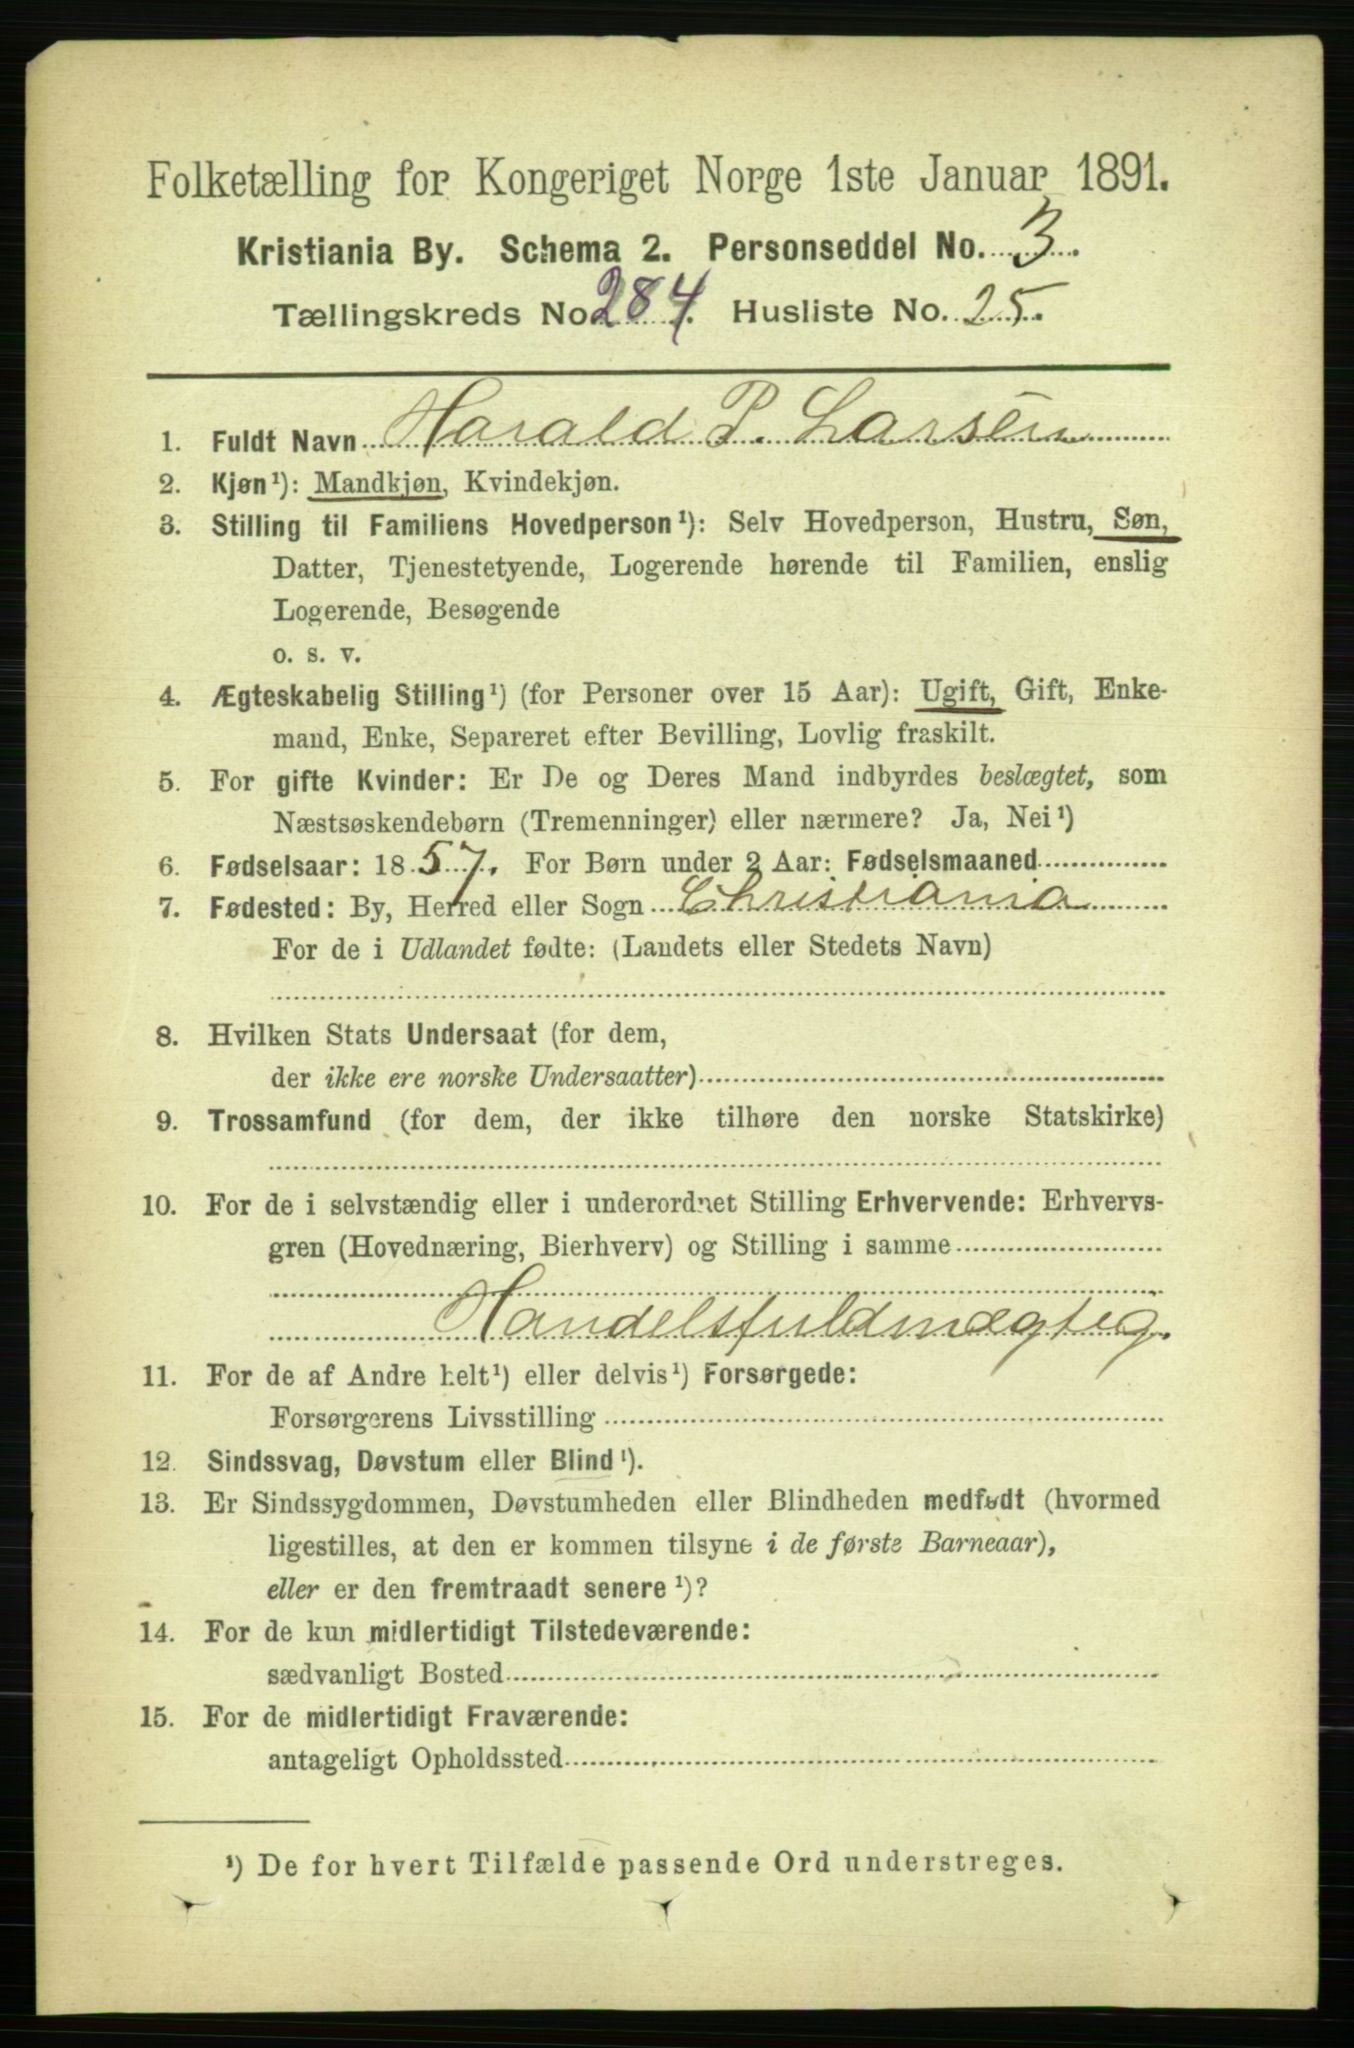 Folketælling for Kongeriget Norge 1ste Januar 1891.
Kristiania By. Schema 2. Personseddel No. 3.
Tællingskreds No. 284. Husliste No. 25.
1. Fuldt Navn Harald P. Larsen
2. Kjøn¹): Mandkjøn, Kvindekjøn.
3. Stilling til Familiens Hovedperson¹): Selv Hovedperson, Hustru, Søn,
Datter, Tjenestetyende, Logerende hørende til Familien, enslig
Logerende, Besøgende
o. s. v.
4. Ægteskabelig Stilling¹) (for Personer over 15 Aar): Ugift, Gift, Enke-
mand, Enke, Separeret efter Bevilling, Lovlig fraskilt.
5. For gifte Kvinder: Er De og Deres Mand indbyrdes beslægtet, som
Næstsøskendebørn (Tremenninger) eller nærmere? Ja, Nei¹)
6. Fødselsaar: 1857. For Børn under 2 Aar: Fødselsmaaned
7. Fødested: By, Herred eller Sogn Christiania
For de i Udlandet fødte: (Landets eller Stedets Navn)
8. Hvilken Stats Undersaat (for dem,
der ikke ere norske Undersaatter)
9. Trossamfund (for dem, der ikke tilhøre den norske Statskirke)
10. For de i selvstændig eller i underordnet Stilling Erhvervende: Erhvervs-
gren (Hovednæring, Bierhverv) og Stilling i samme
Handelsfuldmægtig.
11. For de af Andre helt¹) eller delvis¹) Forsørgede:
Forsørgerens Livsstilling
12. Sindssvag, Døvstum eller Blind¹).
13. Er Sindssygdommen, Døvstumheden eller Blindheden medfødt (hvormed
ligestilles, at den er kommen tilsyne i de første Barneaar),
eller er den fremtraadt senere¹)?
14. For de kun midlertidigt Tilstedeværende:
sædvanligt Bosted
15. For de midlertidigt Fraværende:
antageligt Opholdssted
¹) De for hvert Tilfælde passende Ord understreges.